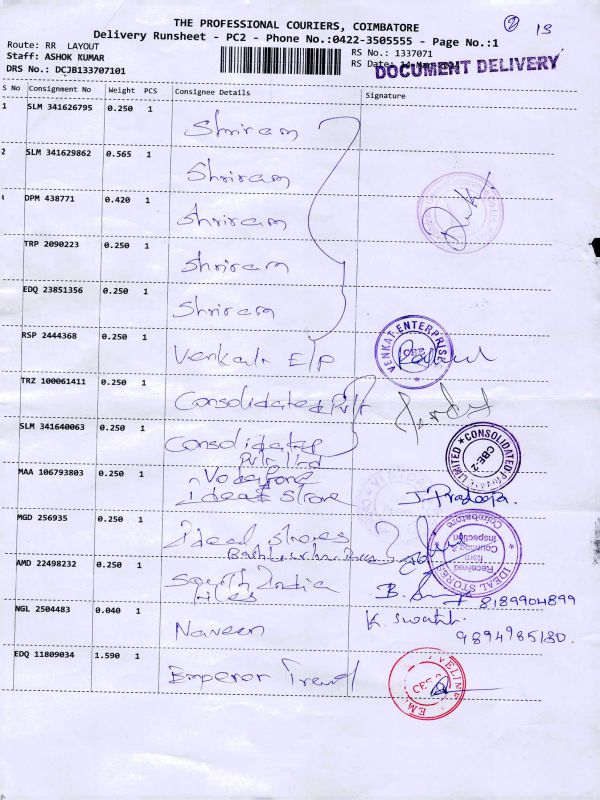 THE PROFESSIONAL COURIERS, COIMBATORE
② 13
Delivery Runsheet - PC2 - Phone No.:0422-3505555 - Page No.:1
Route: RR LAYOUT
RS No.: 1337071
Staff: ASHOK KUMAR
RS Date:
DOCUMENT DELIVERY
DRS No.: DCJB133707101
S No Consignment No Weight PCS Consignee Details Signature
1 SLM 341626795 0.250 1 Shriram
2 SLM 341629862 0.565 1 Shriram
DPM 438771 0.420 1 Shriram
TRP 2090223 0.250 1 Shriram
EDQ 23851356 0.250 1 Shriram
RSP 2444368 0.250 1 Venkat E/P
VENKAT ENTERPRISE
TRZ 100061411 0.250 1 Consolidated Pvt
SLM 341640063 0.250 1 Consolidated
Pvt Ltd
CONSOLIDATED PRIVATE LIMITED CBE-2
MAA 106793803 0.250 1 Vodafone
ideas store J. Pradeepa
MGD 256935 0.250 1 Ideal stores
IDEAL STORES Coimbatore
Received Item Counting & Inspection
AMD 22498232 0.250 1 South India
Files B. 8189904899
NGL 2504483 0.040 1 Naveen K. Swathi
9894985180.
EDQ 11809034 1.590 1 Emperor Travel